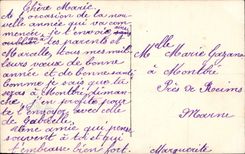 Chère Marie
à l'occasion de la nou-
velle année qui va com-
mencer je t'envoie
les parents de
Marcelle, tous mes meil-
leurs vœux de bonne
année et de bonne santé
Comme je sais que tu
seras à Montbré diman-
che, j'en profite pour
te l'envoyer avec celle
de Gabrielle.
Ton amie qui pense
souvent à toi et qui
t'embrasse bien fort.
Marguerite
Melle Marie
à Montbré
Près de Reims
Marne